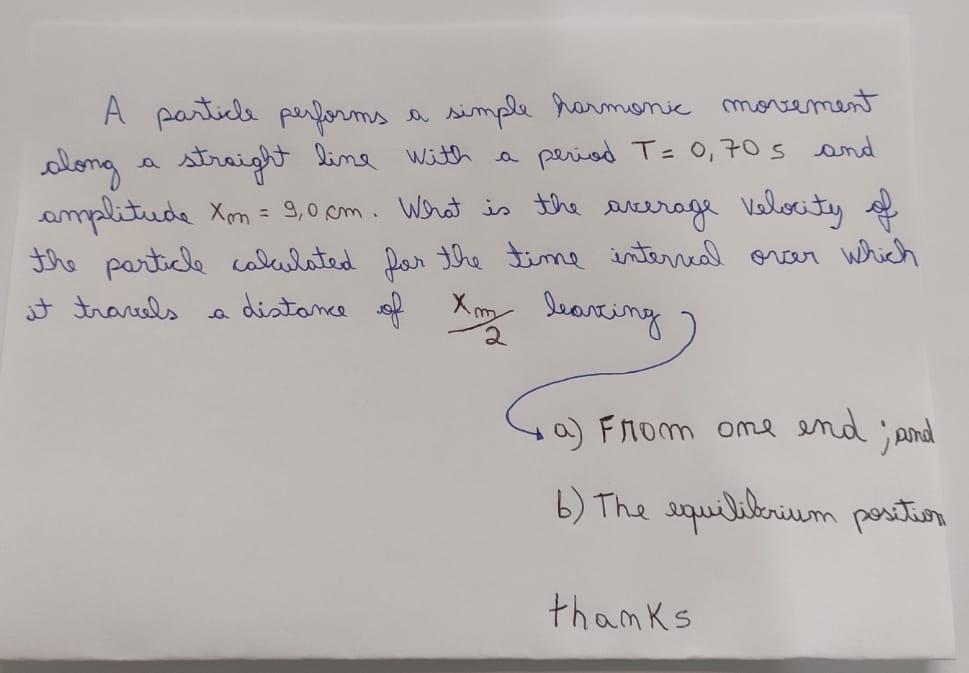 A particle performs a simple harmonic movement
along a straight line with a period T = 0,70 s and
amplitude Xm = 9,0 cm. What is the average velocity of
the particle calculated for the time interval over which
it travels a distance of Xm/2 leaving
a) From one end ; and
b) The equilibrium position
thanks